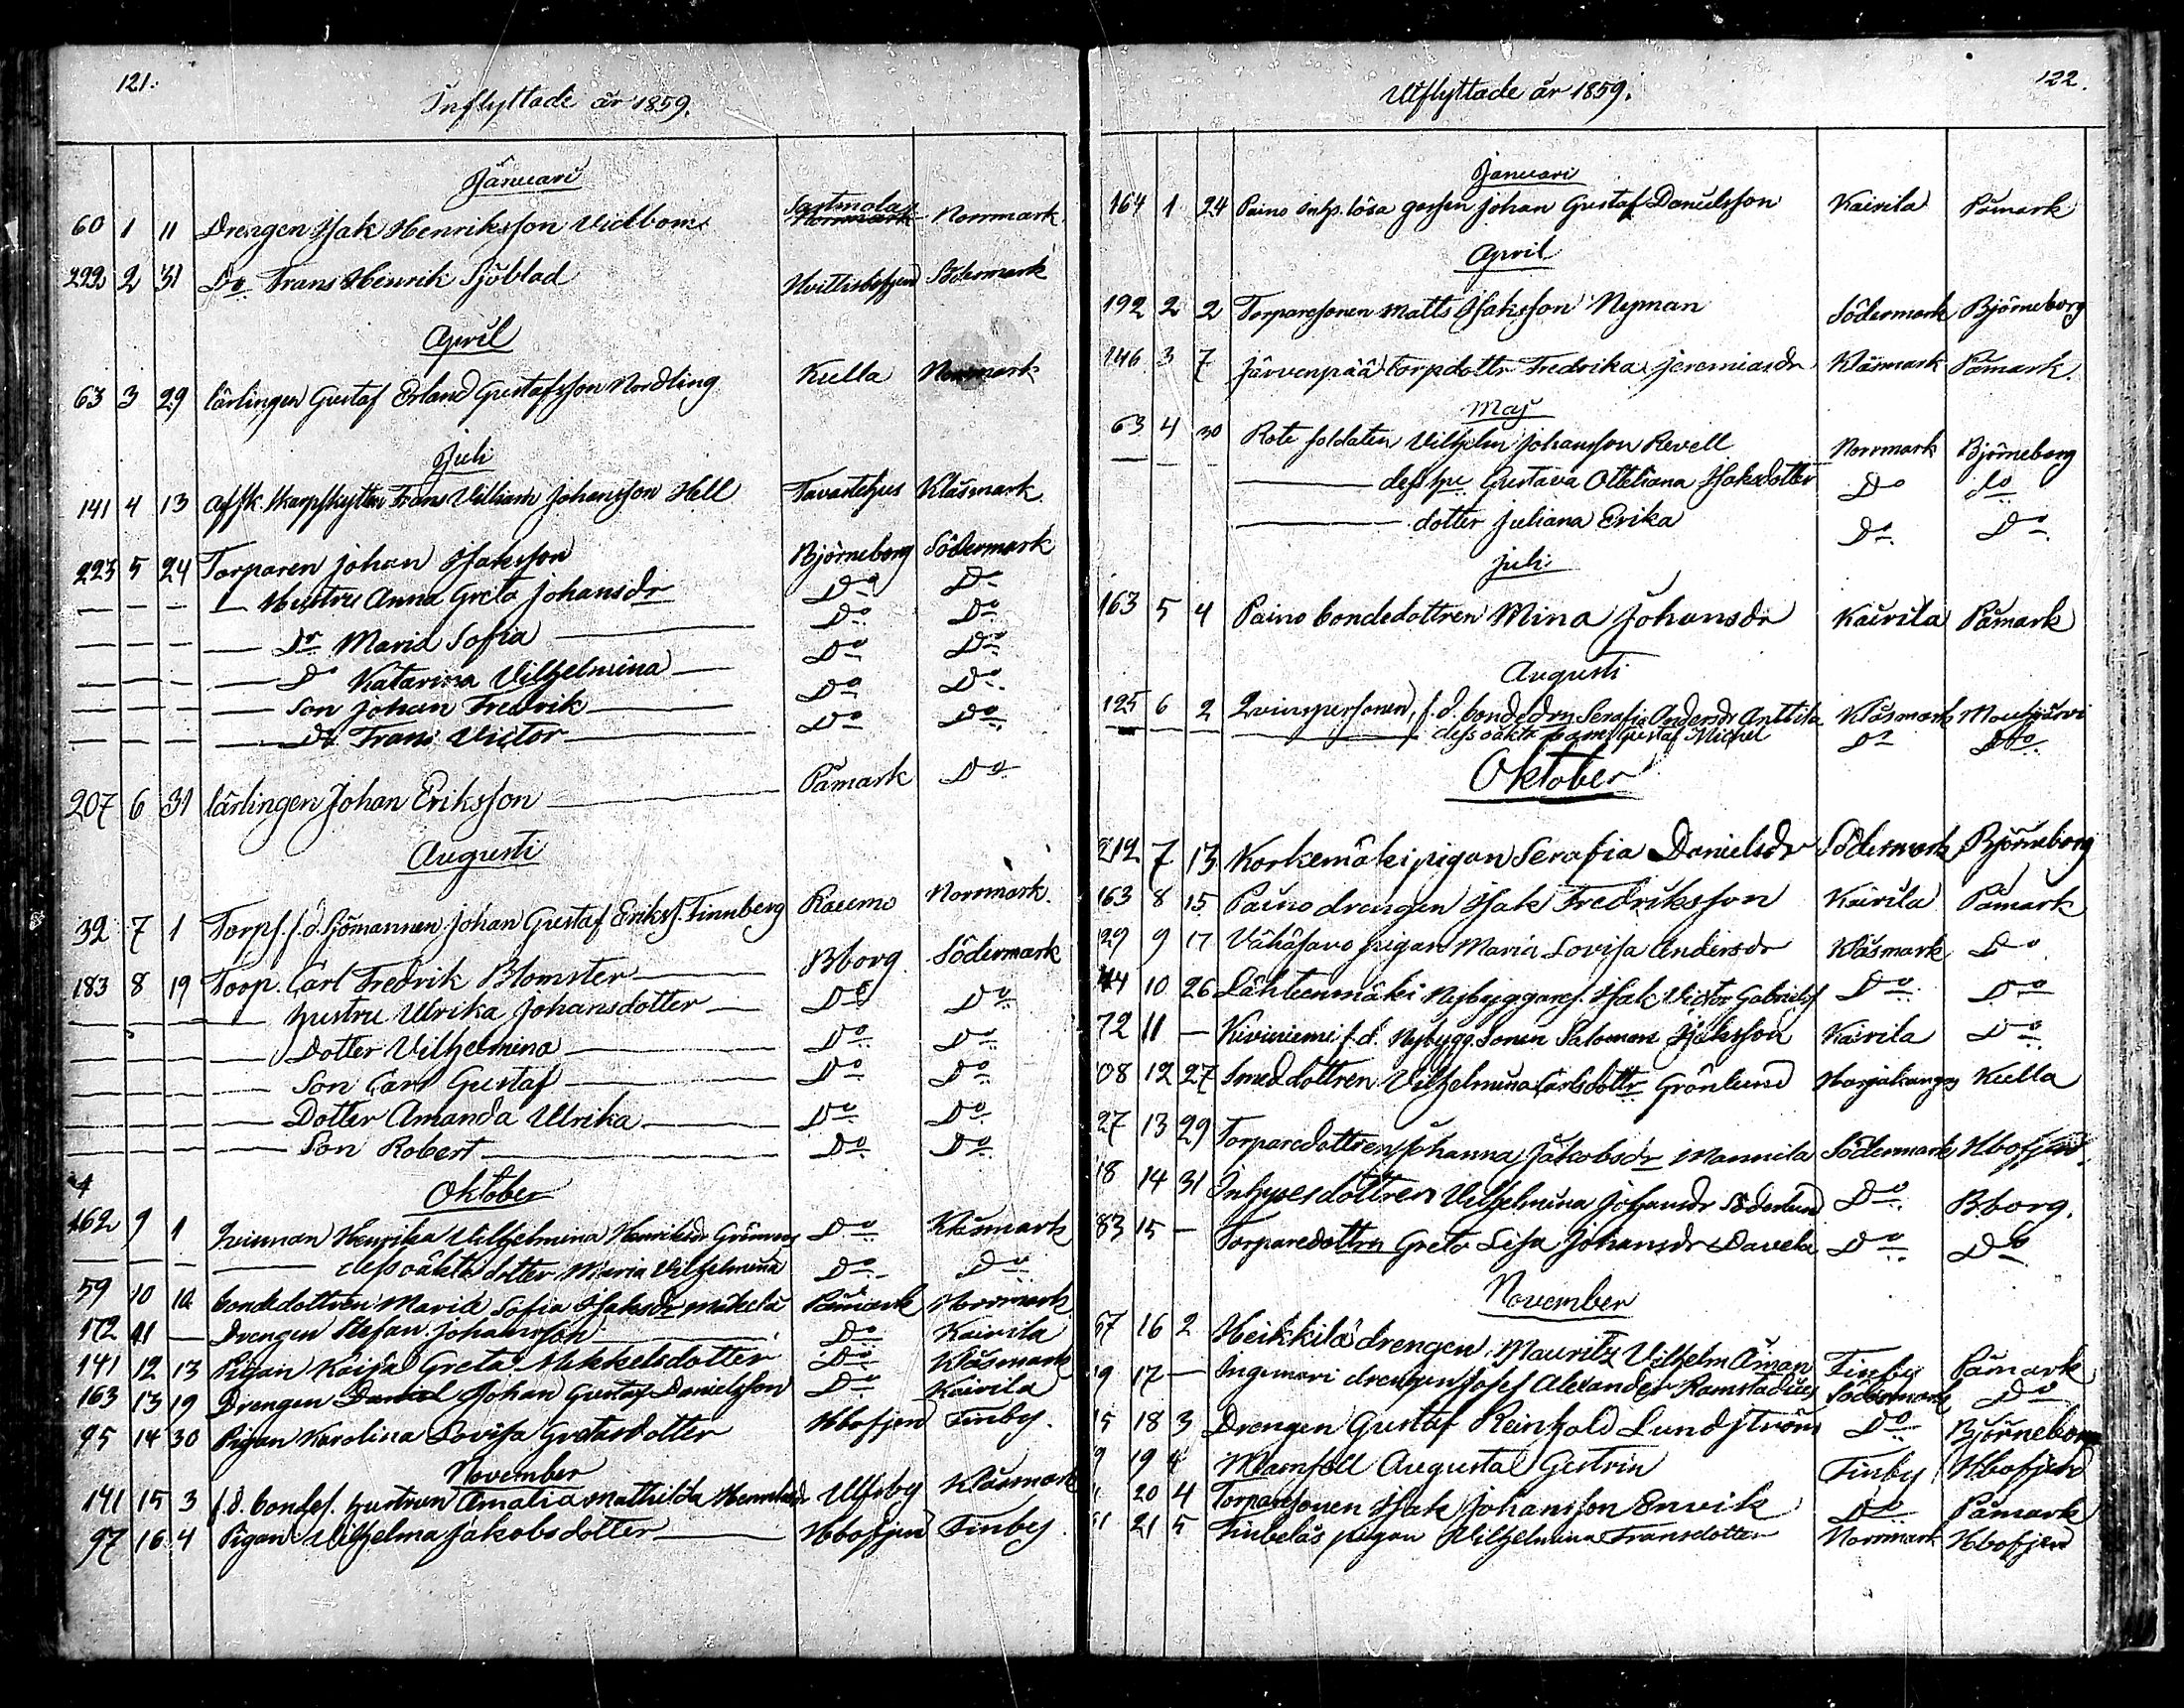 121.
Inflyttade år 1859.
Januari
60 1 11 Drengen Isak Henriksson Vidbom Sastmola Norrmark Norrmark
292 2 31 Do Frans Henrik Sjöblad Hvittisbofjerd Södermark
April
63 3 29 lärlingen Gustaf Erland Gustafsson Nordling Kulla Norrmark
Juli
141 4 13 Afsk. skarpskytten Frans Villiam Johansson Hell Tavastehus Klåsmark
223 5 24 Torparen Johan Isaksson Björneborg Södermark
— — — — Hustru Anna Greta Johansdr Do Do
— — — — Dr Maria Sofia — Do Do
— — — — Do Katarina Vilhelmina — Do Do
— — — — Son Johan Fredrik — Do Do
— — — — Do Frans Victor — Do Do
207 6 31 lärlingen Johan Eriksson — Påmark Do
Augusti
32 7 1 Torps. f.d. Sjömannen Johan Gustaf Eriks. Finnberg Raumo Norrmark.
183 8 19 Torp. Carl Fredrik Blomster — Bborg. Södermark
— — — — hustru Ulrika Johansdotter — Do Do
— — — — Dotter Vilhelmina — Do Do
— — — — Son Carl Gustaf — Do Do
— — — — Dotter Amanda Ulrika — Do Do
— — — — Son Robert — Do Do
4 Oktober
162 9 1 Henrika Vilhelmina Henriksdr Do Klåsmark
— — — — dess oäkta dotter Maria Vilhelmina Do Do
59 10 12 bondedottren Maria Sofia Isaksdr Mikelä Påmark Norrmark
172 11 — Drengen Stefan Johansson — Do Kairila
141 12 13 Pigan Kaisa Greta Mikkelsdotter Do Klåsmark
163 13 19 Drengen Daniel Johan Gustaf Danielsson Do Kairila
95 14 30 Pigan Karolina Lovisa Gretasdotter Hbofjerd Finby.
November
141 15 3 f.d. bondes. hustrun Amalia Mathilda Ulfsby Klåsmark
97 16 4 Pigan Vilhelma Jakobsdotter — Hbofjerd Finby.
122.
Utflyttade år 1859.
Januari
164 1 24 Paino inhs. lösa gossen Johan Gustaf Danielsson Kairila Påmark
April
192 2 2 Torparesonen Matts Isaksson Nyman Södermark Björneborg
146 3 7 Järvenpää torpdottr Fredrika Jeremiasdr Klåsmark Påmark.
Maj
63 4 30 Rote soldaten Vilhelm Johansson Revell Norrmark Björneborg
— — — — dess hu Gustava Otteliana Isaksdotter Do do
— dotter Juliana Erika Do Do
Juli
163 5 4 Paino bondedottren Mina Johansdr Kairila Påmark
Augusti
125 6 2 Qvinspersonen, f.d. bondedrn Serafia Andersdr Anttila Klåsmark Mouhijärvi
— — — — dess oäkta barn Gustaf Michel Do Do
Oktober
212 7 13 Korkemäki pigan Serafia Danielsdr Södermark Björneborg
163 8 15 Paino drengen Isak Fredriksson Kairila Påmark
29 9 17 Vähäsavo pigan Maria Lovisa Andersdr Klåsmark Do
44 10 26 Lähteenmäki Nybyggares. Isak Victor Gabrielss Do Do
72 11 — Kiviniemi f.d. Nybygg. Sonen Salomon Isaksson Kairila Do
08 12 27 Smeddottren Vilhelmina Carlsdottr Grönlund Harjakangas Kulla
27 13 29 Torparedottren Johanna Jakobsdr Mannila Södermark Hbofjerd.
18 14 31 Inhysesdottren Vilhelmina Johansdr Söderlund Do B.borg.
83 15 — Torparedottrn Greta Lisa Johansdr Davela Do Do
November
67 16 2 Heikkilä drengen Mauritz Vilhelm Åman Finby Påmark
9 17 — Ingemari drengen Josef Alexander Ramstadius Södermark Do
15 18 3 Drengen Gustaf Reinhold Lundström Do Björneborg
9 19 4 Mamsell Augusta Gestrin Finby Hbofjerd
20 4 Torparesonen Isak Johansson Envik Do Påmark
21 5 pigan Vilhelmina Fransdotter Norrmark Hbofjerd